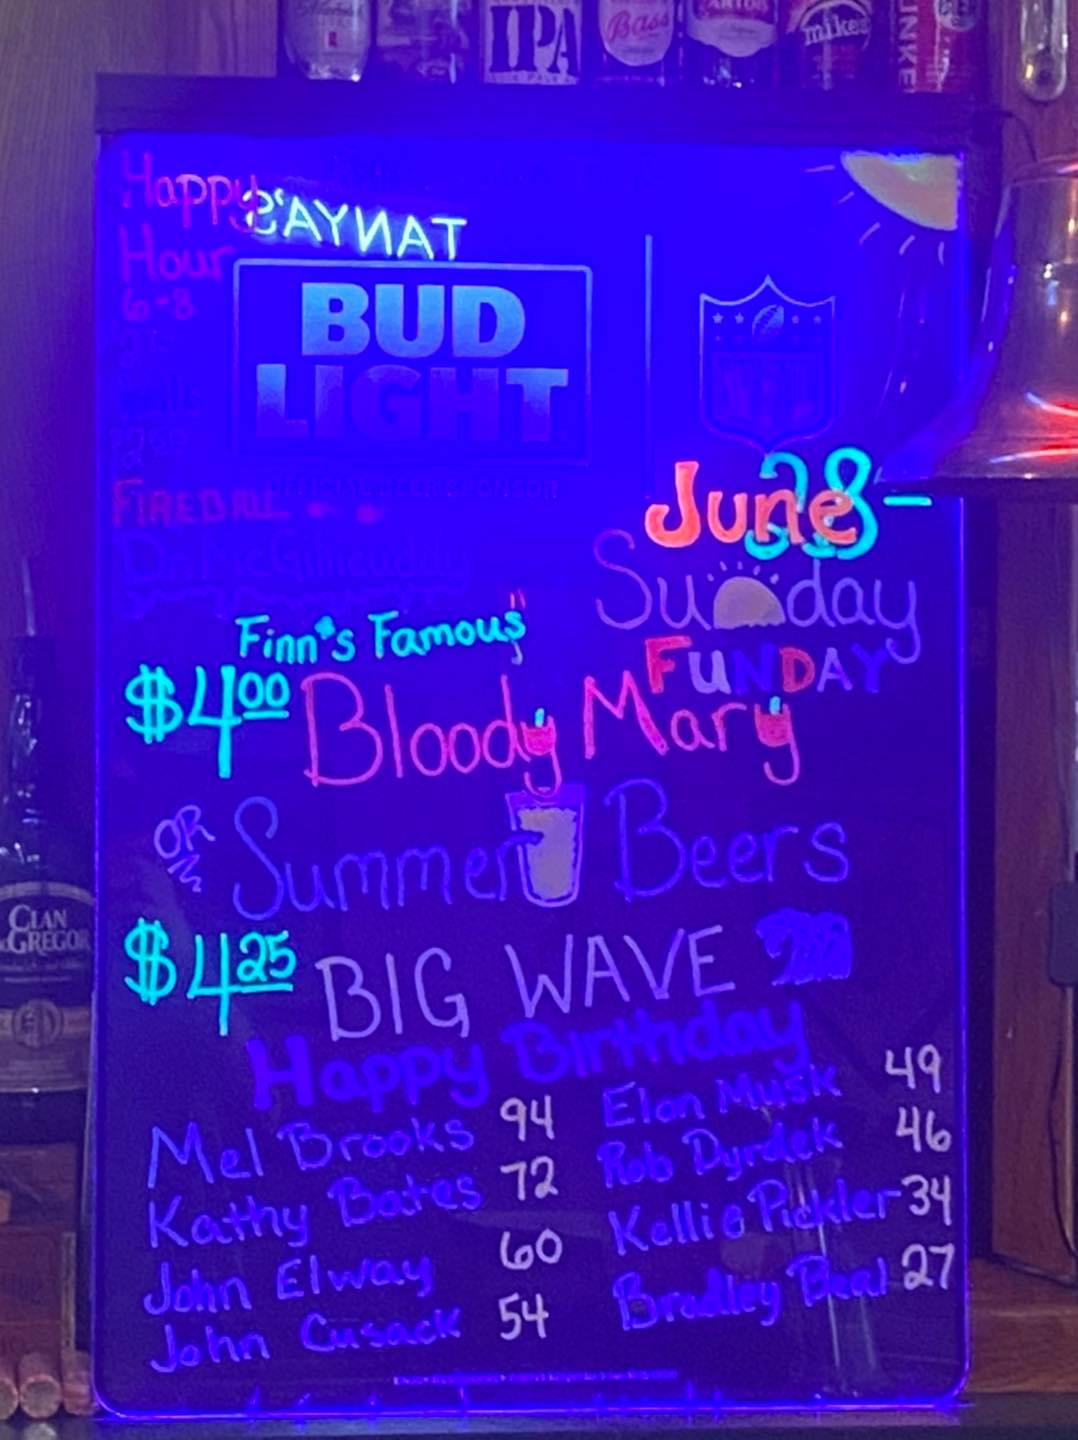 IPA
Bass
mike's
Happy
TANYA'S
Hour
6-8
BUD
LIGHT
OFFICIAL BEER SPONSOR
FIREBALL
Dr. McGillicuddy
June 28-
Sunday
FUNDAY
Finn's Famous
$4.00 Bloody Mary
OR Summer Beers
$4.25 BIG WAVE
CLAN
MACGREGOR
Happy Birthday
Mel Brooks 94 Elon Musk 49
Kathy Bates 72 Rob Dyrdek 46
John Elway 60 Kellie Pickler 34
John Cusack 54 Bradley Beal 27